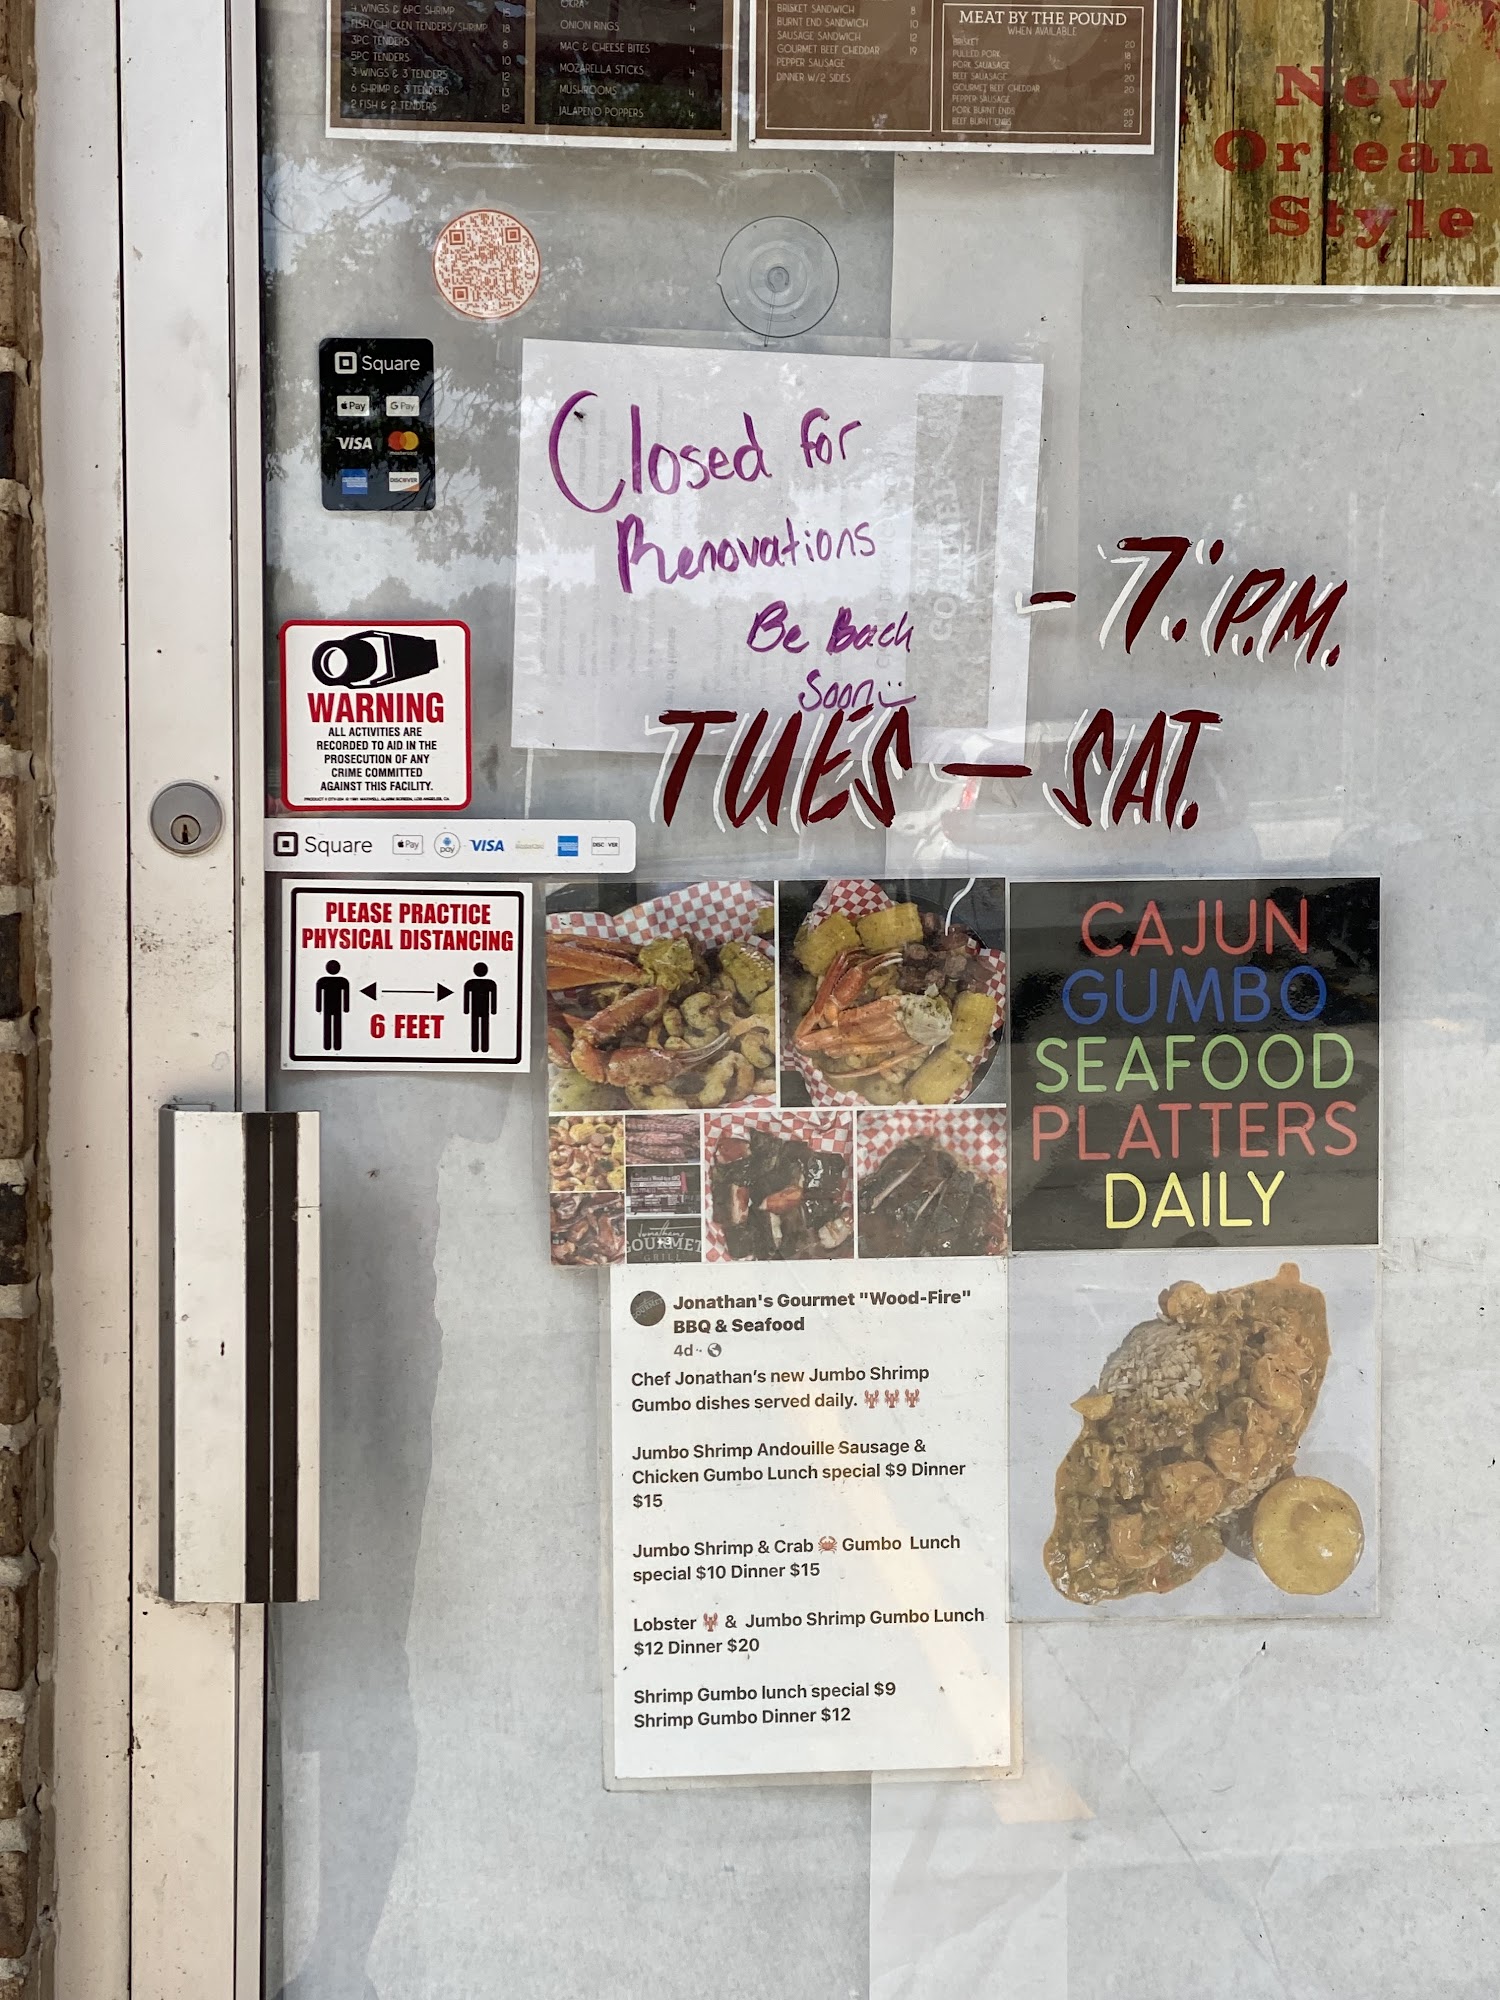 4 WINGS & 6PC SHRIMP 15
FISH/CHICKEN TENDERS/SHRIMP 18
3PC TENDERS 8
5PC TENDERS 10
3 WINGS & 3 TENDERS 12
6 SHRIMP & 3 TENDERS 13
2 FISH & 2 TENDERS 12
OKRA 4
ONION RINGS 4
MAC & CHEESE BITES 4
MOZARELLA STICKS 4
MUSHROOMS 4
JALAPENO POPPERS 4
BRISKET SANDWICH 8
BURNT END SANDWICH 10
SAUSAGE SANDWICH 12
GOURMET BEEF CHEDDAR 19
PEPPER SAUSAGE
DINNER W/2 SIDES
MEAT BY THE POUND
WHEN AVAILABLE
BRISKET 20
PULLED PORK 18
PORK SAUSAGE 19
BEEF SAUSAGE 20
GOURMET BEEF CHEDDAR 20
PEPPER SAUSAGE
PORK BURNT ENDS 20
BEEF BURNT ENDS 22
New
Orlean
Style
Square
Pay G Pay
VISA mastercard
DISCOVER
Closed for
Renovations
Be Back
Soon
- 7: P.M.
TUES - SAT.
WARNING
ALL ACTIVITIES ARE
RECORDED TO AID IN THE
PROSECUTION OF ANY
CRIME COMMITTED
AGAINST THIS FACILITY.
Square Pay pay VISA DISCOVER
PLEASE PRACTICE
PHYSICAL DISTANCING
6 FEET
CAJUN
GUMBO
SEAFOOD
PLATTERS
DAILY
Jonathans
GOURMET
GRILL
+3
Jonathan's Gourmet "Wood-Fire"
BBQ & Seafood
4d ·
Chef Jonathan's new Jumbo Shrimp
Gumbo dishes served daily. 🦞🦞🦞
Jumbo Shrimp Andouille Sausage &
Chicken Gumbo Lunch special $9 Dinner
$15
Jumbo Shrimp & Crab 🦀 Gumbo Lunch
special $10 Dinner $15
Lobster 🦞 & Jumbo Shrimp Gumbo Lunch
$12 Dinner $20
Shrimp Gumbo lunch special $9
Shrimp Gumbo Dinner $12